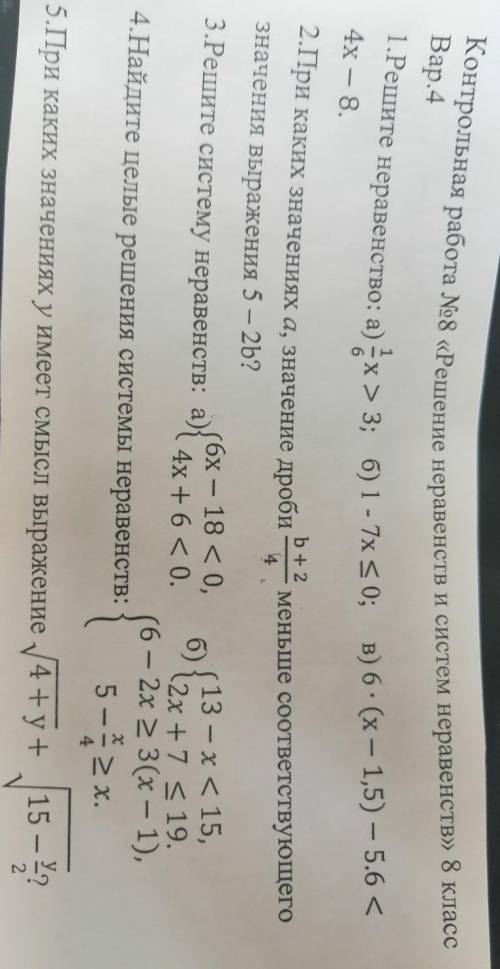 Контрольная работа №8 «Решение неравенств и систем неравенств» 8 класс
Вар.4
1.Решите неравенство: а) 1/6 x > 3;   б) 1 - 7x ≤ 0;   в) 6 · (x – 1,5) – 5.6 <
4x – 8.
2.При каких значениях a, значение дроби (b + 2)/4 меньше соответствующего
значения выражения 5 – 2b?
3.Решите систему неравенств: а) { 6x – 18 < 0, 4x + 6 < 0.   б) { 13 – x < 15, 2x + 7 ≤ 19.
4.Найдите целые решения системы неравенств: { 6 – 2x ≥ 3(x – 1), 5 – x/4 ≥ x.
5.При каких значениях y имеет смысл выражение √(4 + y) + √(15 – y/2)?